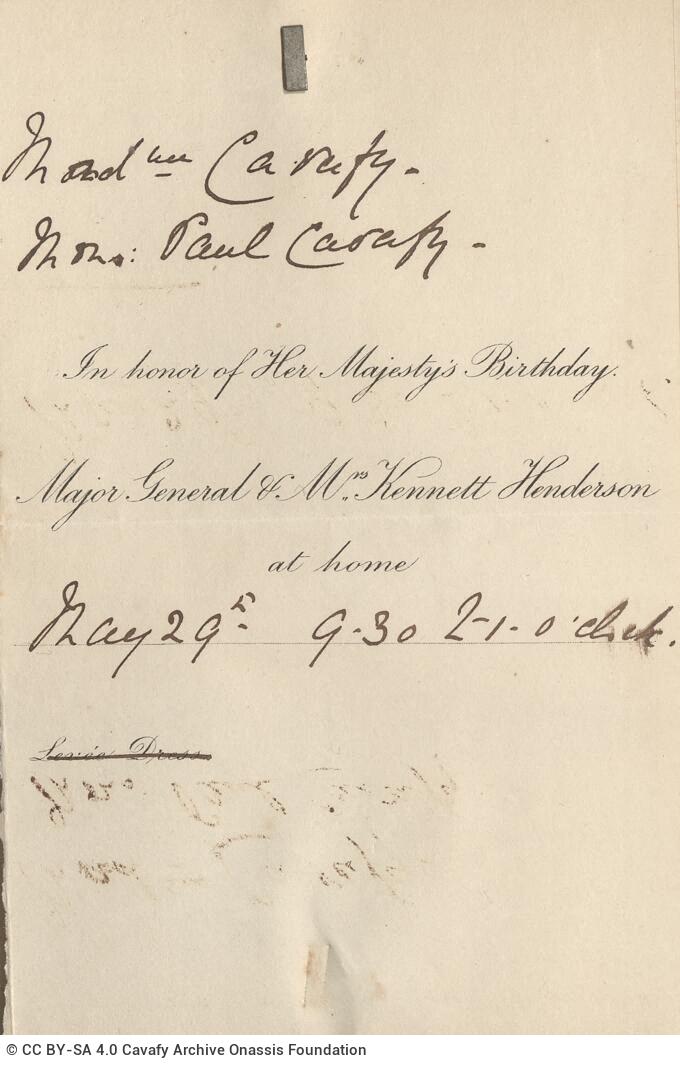 Madme Cavafy.
Mons: Paul Cavafy.
In honor of Her Majesty's Birthday.
Major General & Mrs Kennett Henderson
at home
May 29th 9.30 to 1. o'clock.
Levée Dress.
© CC BY-SA 4.0 Cavafy Archive Onassis Foundation